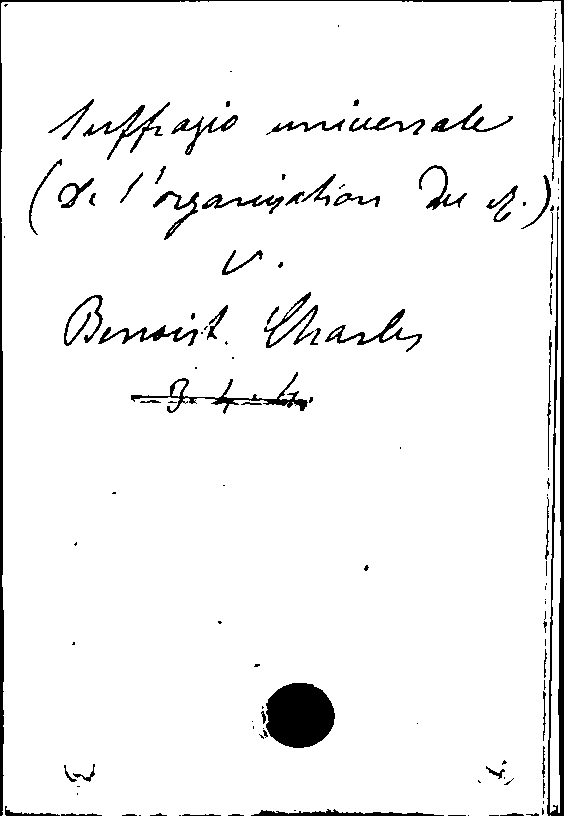 Suffragio universale
(De l'organisation du s.)
V.
Benoist Charles
3.4.4.